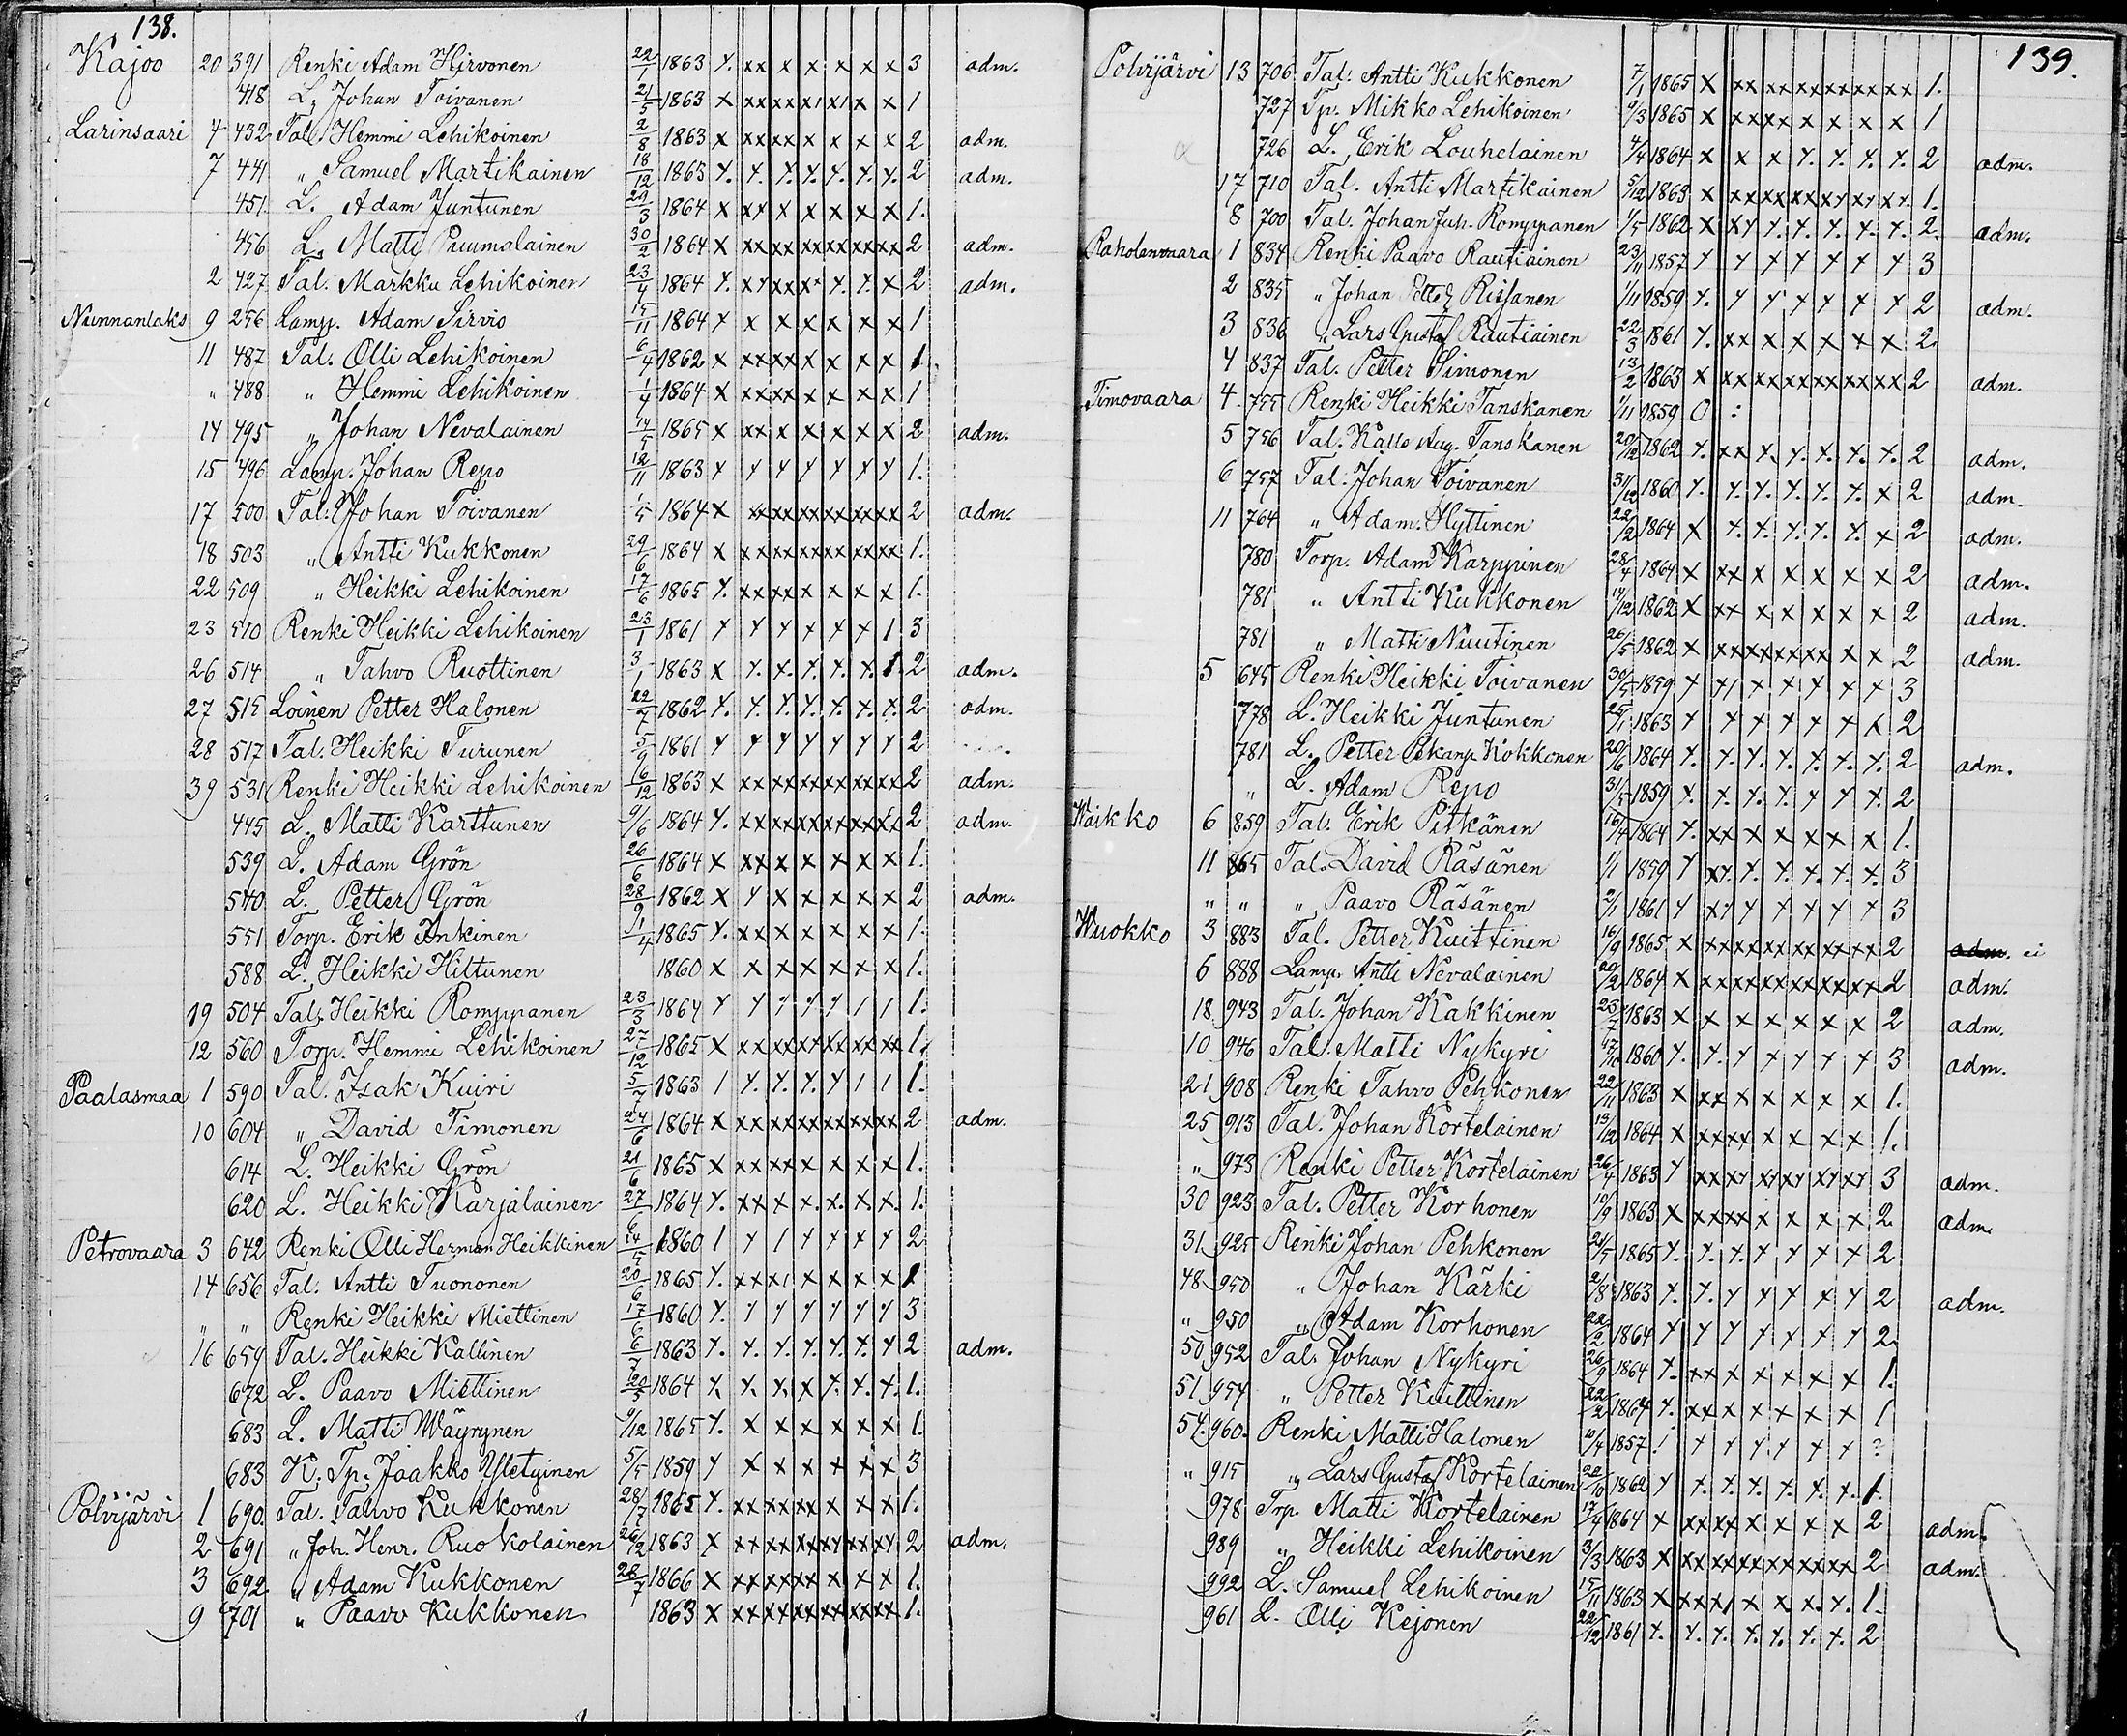 138.
Kajoo 20 391 Renki Adam Hirvonen 22/1 1863 x. xx x x x x x 3 adm.
418 L. Johan Toivanen 21/5 1863 x xx xx x x x x 1
Larinsaari 4 432 Tal. Hemmi Lehikoinen 2/8 1863 x xx xx x x x x 2 adm.
7 441 " Samuel Martikainen 18/12 1863 x. x. x. x. x. x. x. 2 adm.
451. L. Adam Juntunen 29/3 1864 x xx x x x x x 1.
456 L. Matti Puumalainen 30/2 1864 x xx xx xx xx xx x 2 adm.
2 427 Tal. Markku Lehikoinen 23/4 1864 x. xx xx x. x. x. x 2 adm.
Nunnanlaks 9 256 Lamp. Adam Sirvio 15/11 1864 x x x x x x x 1
11 487 Tal. Olli Lehikoinen 6/4 1862 x xx xx x x x x 1.
" 488 " Hemmi Lehikoinen 1/4 1864 x xx xx x x x x 1
14 495 " Johan Nevalainen 14/5 1865 x xx x x x x x 2 adm.
15 496 Lamp. Johan Repo 12/11 1863 x x x x x x x 1.
17 500 Tal. Johan Toivanen 1/5 1864 x xx xx xx xx xx x 2 adm.
18 503 " Antti Kukkonen 29/6 1864 x xx xx xx xx xx x 1.
22 509 " Heikki Lehikoinen 17/6 1865 x. xx xx x x x x 1.
23 510 Renki Heikki Lehikoinen 23/1 1861 x x x x x x 1 3
26 514 " Tahvo Ruottinen 3/1 1863 x x. x. x. x. x. 1. 2 adm.
27 515 Loinen Petter Halonen 22/7 1862 x. x. x. x. x. x. x. 2 adm.
28 517 Tal. Heikki Turunen 5/9 1861 x x x x x x x 2
39 531 Renki Heikki Lehikoinen 16/12 1863 x xx xx xx xx xx x 2 adm.
445 L. Matti Karttunen 9/6 1864 x. xx xx xx xx xx x 2 adm.
539 L. Adam Grön 26/6 1864 x xx x x x x x 1.
540 L. Petter Grön 28/9 1862 x x x x x x x 2 adm.
551 Torp. Erik Inkinen 1/4 1865 x. xx x x x x x 1.
588 L. Heikki Hiltunen 1860 x x x x x x x 1.
19 504 Tal. Heikki Romppanen 23/3 1864 x x x x x 1 1 1.
12 560 Torp. Hemmi Lehikoinen 27/12 1865 x xx xx xx xx xx 1.
Paalasmaa 1 590 Tal. Isak Kuiri 5/7 1863 1 x. x. x. x 1 1 1.
10 604 " David Timonen 24/6 1864 x xx xx xx xx xx x 2 adm.
614 L. Heikki Grön 21/6 1865 x xx xx x x x x 1.
620 L. Heikki Karjalainen 27/6 1864 x. xx x x. x. x. x. 1.
Petrovaara 3 642 Renki Olli Herman Heikkinen 24/5 1860 1 x 1 x x x x 2
14 656 Tal. Antti Tuononen 20/6 1865 x. xx x1 x x x x 1
" " Renki Heikki Miettinen 17/6 1860 x. x x x x x x 3
16 659 Tal. Heikki Kallinen 6/7 1863 x. x. x. x. x. x. x 2 adm.
672 L. Paavo Miettinen 20/5 1864 x. x. x. x x. x. x. 1.
683 L. Matti Wäyrynen 9/12 1865 x. x x x x x x 1.
683 K. Tp. Jaakko Yletyinen 5/5 1859 x x x x x x x 3
Polvijärvi 1 690. Tal. Tahvo Kukkonen 28/7 1865 x. xx xx xx x x x 1.
2 691 " Joh. Henr. Ruokolainen 26/2 1863 x xx xx xx xx xx xx 2 adm.
3 692. " Adam Kukkonen 28/7 1866 x xx xx xx x x x 1.
9 701 " Paavo Kukkonen 1863 x xx xx xx xx xx x 1.
139.
Polvijärvi 13 706 Tal. Antti Kukkonen 7/1 1865 x xx xx xx xx xx x 1.
727 Tp. Mikko Lehikoinen 9/3 1865 x xx xx x x x x 1
726 L. Erik Louhelainen 4/4 1864 x x x x. x. x. x. 2 adm.
17 710 Tal. Antti Martikainen 5/12 1863 x xx xx xx xx xx x. 1.
8 700 Tal. Johan Juh. Romppanen 1/5 1862 x xx x. x. x. x. x. 2. adm.
Raholanvaara 1 834 Renki Paavo Rautiainen 23/11 1857 x x x x x x x 3
2 835 " Johan Petter Rissanen 1/11 1859 x. x x x x x x 2 adm.
3 836 " Lars Gustaf Rautiainen 22/3 1861 x. xx x x x x x 2.
4 837 Tal. Petter Simonen 13/2 1863 x xx xx xx xx xx x 2 adm.
Timovaara 4 755 Renki Heikki Tanskanen 1/11 1859 0 :
5 756 Tal. Kalle Aug. Tanskanen 20/12 1862 x. xx x. x. x. x. x. 2 adm.
6 757 Tal. Johan Toivanen 31/12 1860 x. x. x. x. x. x. x 2 adm.
11 764 " Adam Hyttinen 22/2 1864 x x. x. x. x. x. x 2 adm.
780 Torp. Adam Karppinen 28/4 1864 x xx x x x x x 2 adm.
781 " Antti Kukkonen 14/12 1862 x xx x x x x x 2 adm.
781 " Matti Nuutinen 26/5 1862 x xx xx xx xx x x 2 adm.
5 645 Renki Heikki Toivanen 30/5 1859 x x1 x x x x x 3
778 L. Heikki Juntunen 25/1 1863 x x x x x x x 2
781 L. Petter Kokkonen 20/6 1864 x. x. x. x. x. x. x. 2 adm.
" L. Adam Repo 31/5 1859 x. x. x. x. x x x. 2
Waikko 6 859 Tal. Erik Pitkänen 16/4 1864 x. xx x x x x x 1.
11 865 Tal. David Räsänen 1/1 1859 x xx. x. x. x. x. x. 3
" " " Paavo Räsänen 2/1 1861 x xx x x x x x 3
Wuokko 3 883 Tal. Petter Kuittinen 16/9 1865 x xx xx xx xx xx x 2 adm. ei
6 888 Lamp. Antti Nevalainen 20/2 1864 x xx xx xx xx xx xx 2 adm.
18 943 Tal. Johan Kakkinen 25/7 1863 x x x x x x x 2 adm.
10 946 Tal. Matti Nykyri 17/10 1860 x. x. x x x x x 3 adm.
21 908 Renki Tahvo Pehkonen 22/11 1863 x xx x x x x x 1.
25 913 Tal. Johan Kortelainen 13/12 1864 x xx xx x x x x 1.
" 973 Renki Petter Kortelainen 26/4 1863 x xx xx xx xx xx 3 adm.
30 923 Tal. Petter Korhonen 10/9 1863 x xx xx x x x x 2 adm.
31 925 Renki Johan Pehkonen 21/5 1865 x. x. x. x x x x 2
48 950 " Johan Kärki 2/8 1863 x. x. x x x x x 2 adm.
" 950 " Adam Korhonen 22/2 1864 x x x x x x x 2.
50 952 Tal. Johan Nykyri 26/9 1864 x. xx x x x x x 1.
51 954 " Petter Kuittinen 22/2 1864 x. xx x x x x x 1
54. 960. Renki Matti Halonen 10/4 1857 ! x x x x x x ?
" 915 " Lars Gustaf Kortelainen 22/10 1862 x x. x. x. x. x. x. 1.
978 Trp. Matti Kortelainen 17/4 1864 x xx xx x x x x 2 adm.
989 " Heikki Lehikoinen 3/3 1863 x xx xx xx xx xx x 2 adm.
992 L. Samuel Lehikoinen 15/11 1863 x xx x1 x x x. x. 1.
961 L. Olli Kejonen 22/12 1861 x. x. x. x. x. x. x. 2